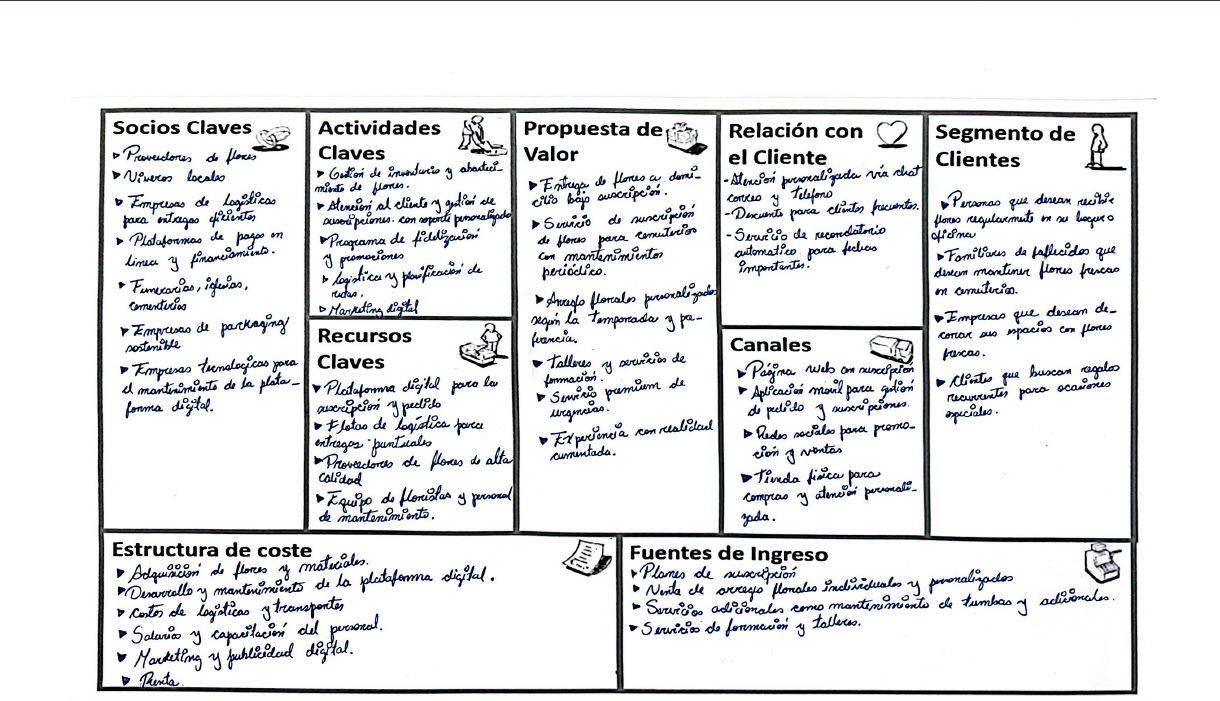 Socios Claves
▷ Proveedores de flores
▷ Viveros locales
▷ Empresas de logísticas
para entregas eficientes
▷ Plataformas de pagos en
linea y financiamiento.
▷ Funerarias, iglesias,
cementerios
▷ Empresas de packaging
sostenible
▷ Empresas tecnologicas para
el mantenimiento de la plata-
forma digital.
Actividades
Claves
▷ Gestión de inventario y abasteci-
miento de flores.
▷ Atención al cliente y gestión de
suscripciones. con soporte personalizado
▷ Programa de fidelización
y promociones
▷ Logística y planificación de
rutas.
▷ Marketing digital
Recursos
Claves
▷ Plataforma digital para la
suscripción y pedido
▷ Flotas de logística para
entregas puntuales
▷ Proveedores de flores de alta
calidad
▷ Equipo de floristas y personal
de mantenimiento.
Propuesta de
Valor
▷ Entrega de flores a domi-
cilio bajo suscripción.
▷ Servicio de suscripción
de flores para cementerios
con mantenimientos
periódico.
▷ Arreglo florales personalizados
según la temporada y pre-
ferencia.
▷ Talleres y servicios de
formación.
▷ Servicio premium de
urgencias.
▷ Experiencia con realidad
aumentada.
Relación con
el Cliente
- Atención personalizada vía chat
correo y teléfono
- Descuento para clientes frecuentes.
- Servicio de recordatorio
automatico para fechas
importantes.
Canales
▷ Página web con suscripción
▷ Aplicación movil para gestión
de pedido y suscripciones.
▷ Redes sociales para promo-
ción y ventas
▷ Tienda física para
compras y atención personali-
zada.
Segmento de
Clientes
▷ Personas que desean recibir
flores regularmente en su hogar u
oficina
▷ Familiares de fallecidos que
desean mantener flores frescas
en cementerios.
▷ Empresas que desean de-
corar sus espacios con flores
frescas.
▷ Clientes que buscan regalos
recurrentes para ocasiones
especiales.
Estructura de coste
▷ Adquisición de flores y materiales.
▷ Desarrollo y mantenimiento de la plataforma digital.
▷ Costos de logísticas y transportes
▷ Salarios y capacitación del personal.
▷ Marketing y publicidad digital.
▷ Renta.
Fuentes de Ingreso
▷ Planes de suscripción
▷ Venta de arreglo florales individuales y personalizados
▷ Servicios adicionales como mantenimiento de tumbas y adicionales.
▷ Servicios de formación y talleres.